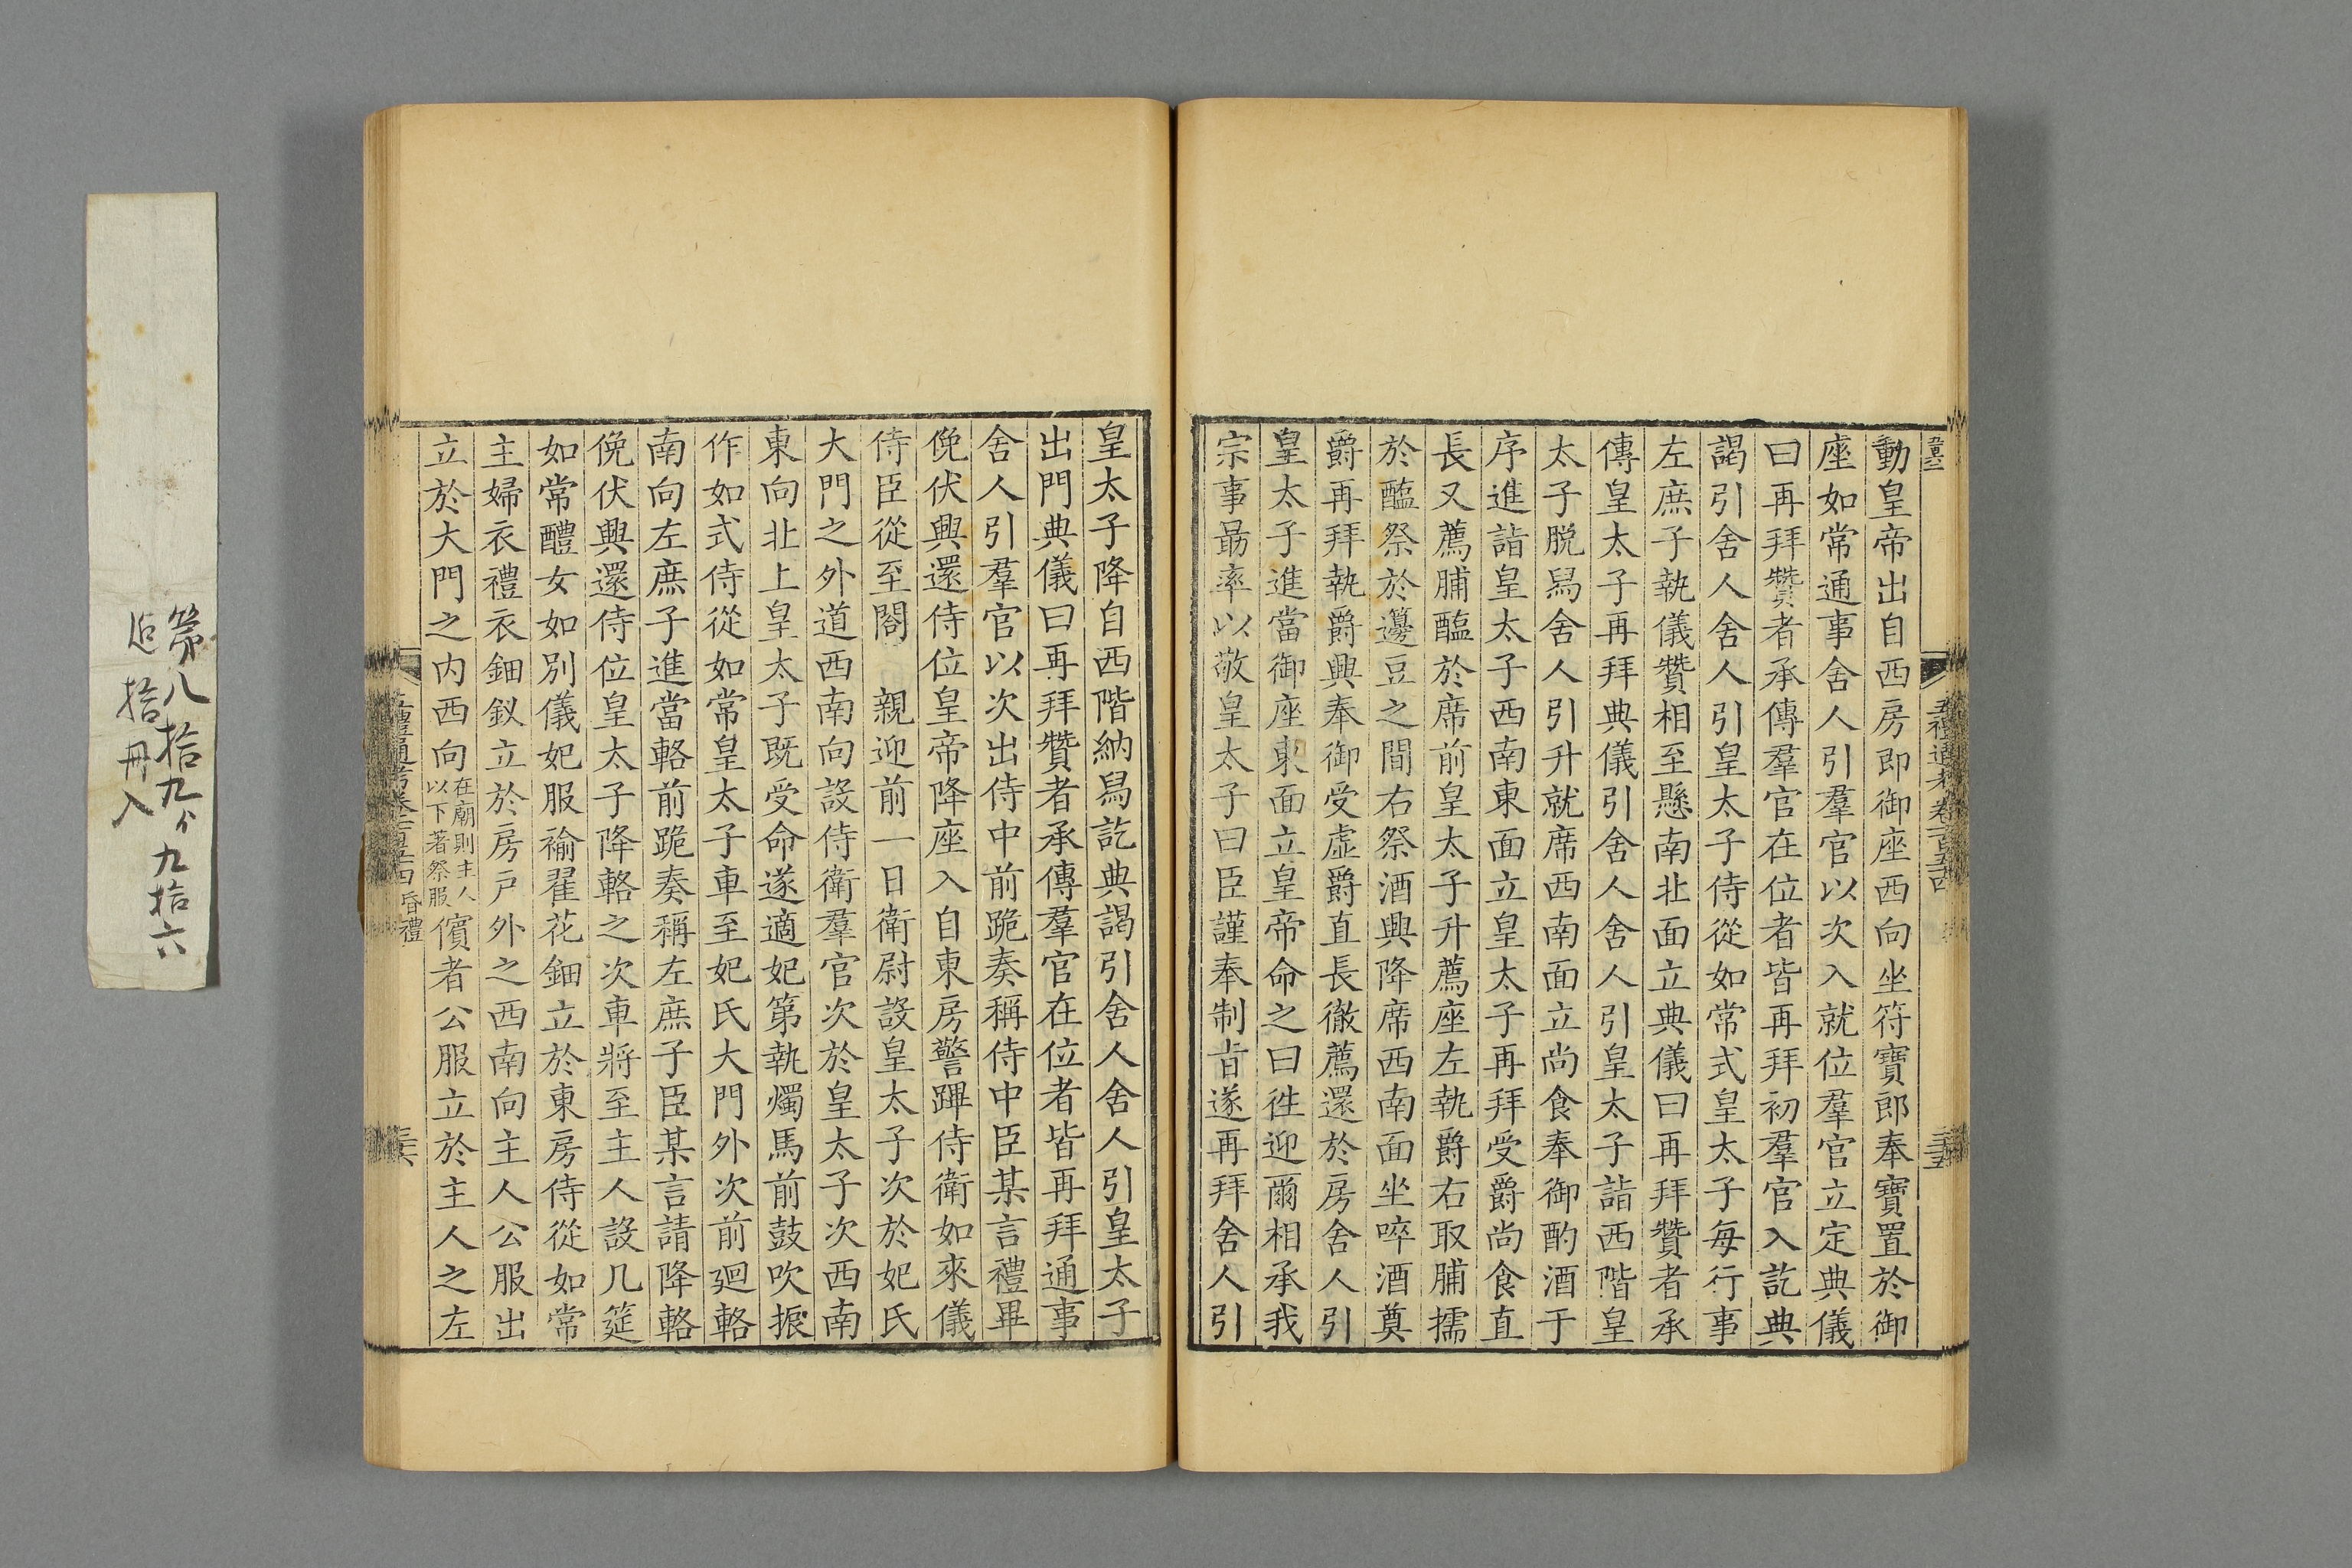 動皇帝出自西房即御座西向坐符寶郎奉寶置於御
座如常通事舍人引羣官以次入就位羣官立定典儀
曰再拜贊者承傳羣官在位者皆再拜初羣官入訖典
謁引舍人舍人引皇太子侍從如常式皇太子每行事
左庶子執儀贊相至懸南北面立典儀曰再拜贊者承
傳皇太子再拜典儀引舍人舍人引皇太子詣西階皇
太子脱舄舍人引升就席西南面立尚食奉御酌酒于
序進詣皇太子西南東面立皇太子再拜受爵尚食直
長又薦脯醢於席前皇太子升薦座左執爵右取脯擩
於醢祭於籩豆之間右祭酒興降席西南面坐啐酒奠
爵再拜執爵興奉御受虛爵直長徹薦還於房舍人引
皇太子進當御座東面立皇帝命之曰徃迎爾相承我
宗事勗率以敬皇太子曰臣謹奉制㫖遂再拜舍人引
皇太子降自西階納舄訖典謁引舍人舍人引皇太子
出門典儀曰再拜贊者承傳羣官在位者皆再拜通事
舍人引羣官以次出侍中前跪奏稱侍中臣某言禮畢
俛伏興還侍位皇帝降座入自東房警蹕侍衛如來儀
侍臣從至閤　親迎前一日衛尉設皇太子次於妃氏
大門之外道西南向設侍衛羣官次於皇太子次西南
東向北上皇太子既受命遂適妃第執燭馬前鼓吹振
作如式侍從如常皇太子車至妃氏大門外次前廻輅
南向左庶子進當輅前跪奏稱左庶子臣某言請降輅
俛伏興還侍位皇太子降輅之次車將至主人設几筵
如常醴女如别儀妃服褕翟花鈿立於東房侍從如常
主婦衣禮衣鈿釵立於房戸外之西南向主人公服出
立於大門之内西向在廟則主人以下著祭服儐者公服立於主人之左
五禮通考卷一百五十四
昏禮
第八拾九ケ九拾六
拾冊入